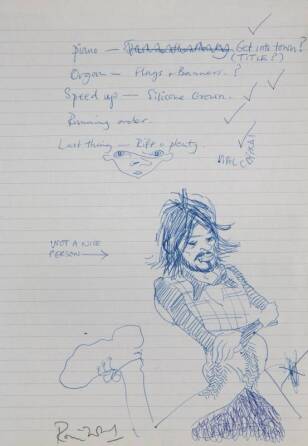 piano — Get into town?
(TITLE?)
Organ — Flags & Banners.?
Speed up — Silicone Grown.
Running order.
Last thing — Riff & plenty.
NOT A NICE
PERSON →